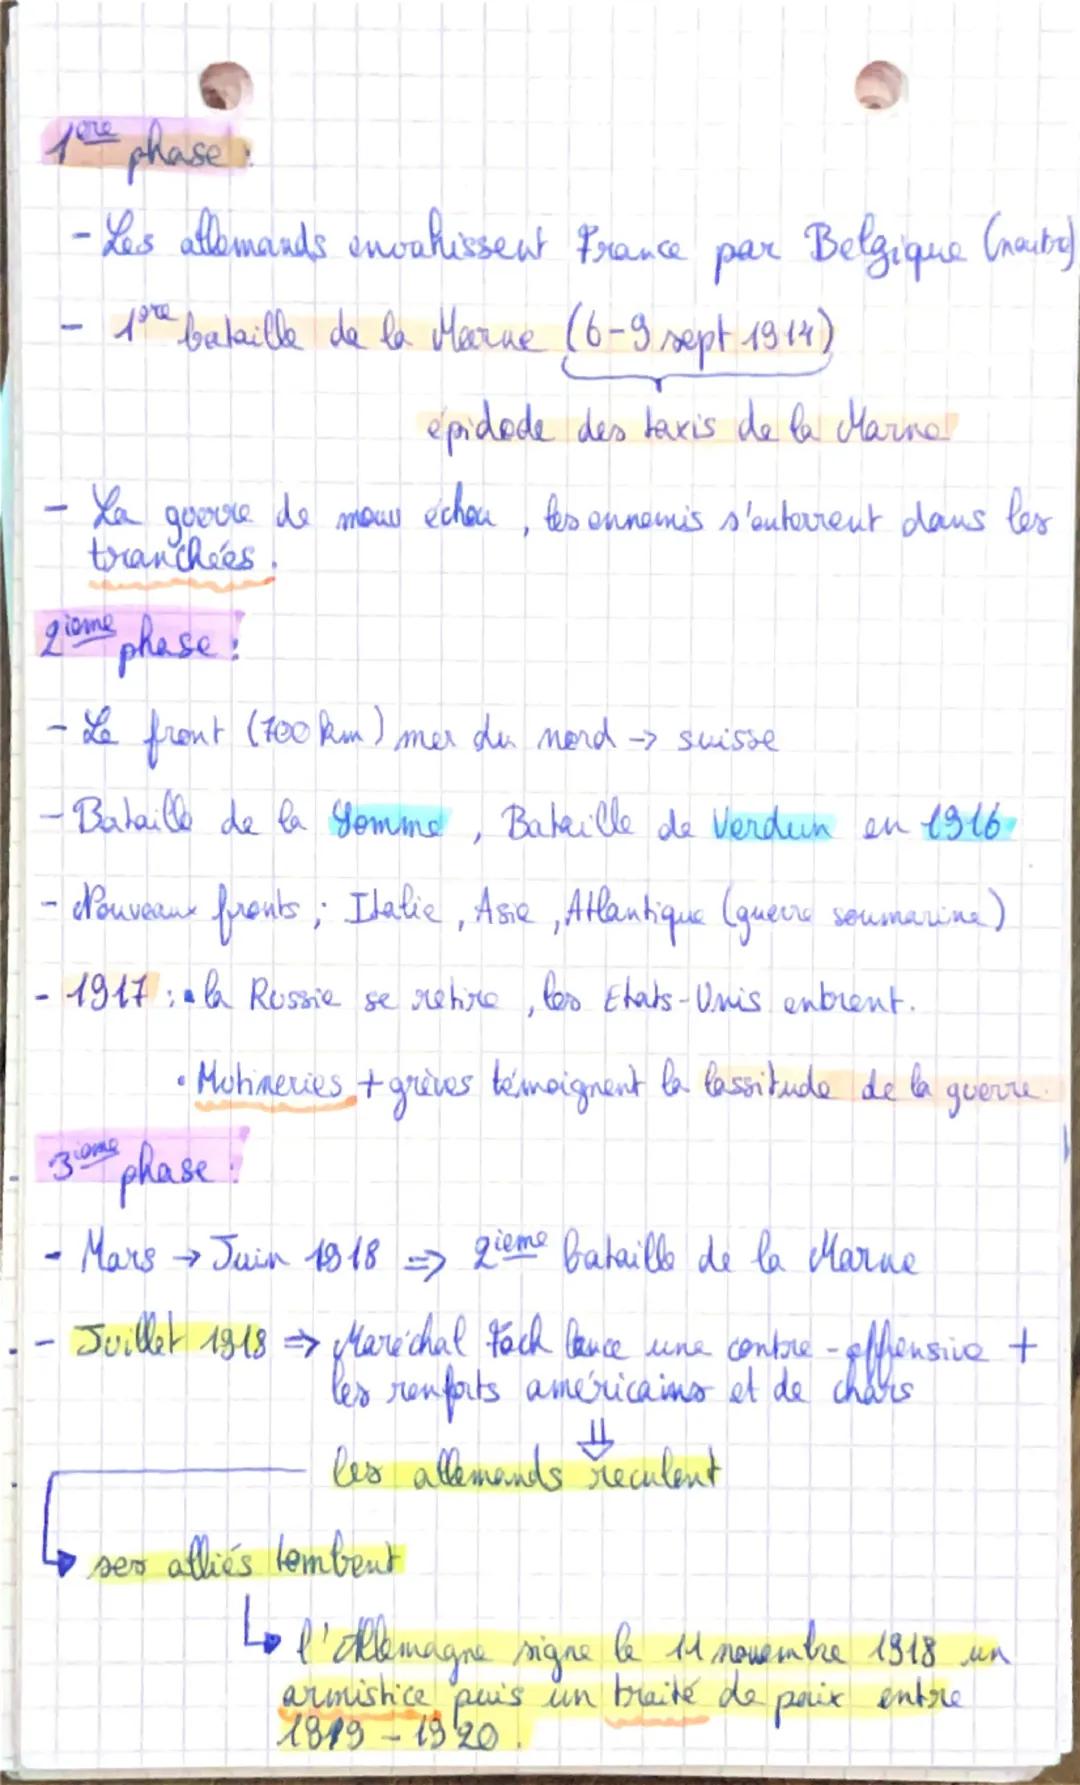 1ère phase :
- Les allemands envahissent France par Belgique (neutre)
- 1ère bataille de la Marne (6-9 sept 1914)
épidode des taxis de la Marne
- La guerre de mouv échou, les ennemis s'enterrent dans les
tranchées.
2ieme phase :
- Le front (700 km) mer du nord → suisse
- Bataille de la Somme, Bataille de Verdun en 1916
- Nouveaux fronts ; Italie, Asie, Atlantique (guerre soumarine)
- 1917 : • la Russie se retire, les Etats-Unis entrent.
• Mutineries + grèves témoignent la lassitude de la guerre.
3ieme phase :
- Mars → Juin 1918 ⇒ 2ieme bataille de la Marne
- Juillet 1918 ⇒ Maréchal Foch lance une contre-offensive +
les renforts américains et de chars
⇓
les allemands reculent
ses alliés tombent
↳ l'Allemagne signe le 11 novembre 1918 un
armistice puis un traité de paix entre
1919 - 1920.